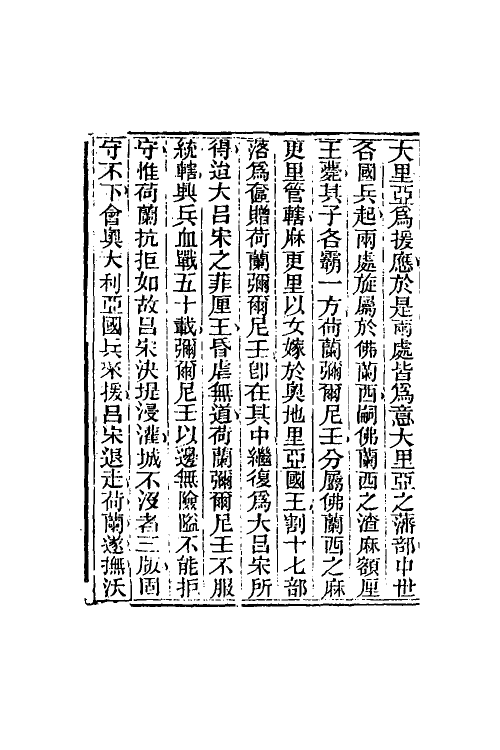 大里亞爲援應於是兩處皆爲意大里亞之藩部中世
各國兵起兩處旋屬於佛蘭西嗣佛蘭西之渣麻額厘
王薨其子各霸一方荷蘭彌爾尼王分屬佛蘭西之麻
更里管轄麻更里以女嫁於奧地里亞國王割十七部
落爲奩贈荷蘭彌爾尼王卽在其中繼復爲大呂宋所
得迨大呂宋之菲厘王昏虐無道荷蘭彌爾尼王不服
統轄興兵血戰五十載彌爾尼王以邊無險隘不能拒
守惟荷蘭抗拒如故呂宋決堤浸灌城不沒者三版固
守不下會奧大利亞國兵來援呂宋退走荷蘭遂撫沃